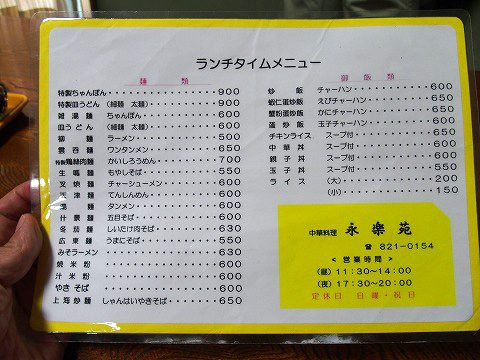 ランチタイムメニュー
麺類
特製ちゃんぽん・・・・・・・・・・900
特製皿うどん(細麺 太麺)・・・・・・900
雑湯麺 ちゃんぽん・・・・・・・・600
皿うどん(細麺 太麺)・・・・・・600
柳麺 ラーメン・・・・・・・・500
雲呑麺 ワンタンメン・・・・・・650
特製鶏絲肉麺 かいしろうめん・・・・・700
生嗎麺 もやしそば・・・・・・550
叉焼麺 チャーシューメン・・・・600
天津麺 てんしんめん・・・・・・600
湯麺 タンメン・・・・・・・・600
什景麺 五目そば・・・・・・・600
冬茹麺 しいたけ肉そば・・・・・630
広東麺 うまにそば・・・・・・550
みそラーメン・・・・・・・・・・630
焼米粉・・・・・・・・・・600
汁米粉・・・・・・・・・・600
やきそば・・・・・・・・・・600
上海炒麺 しゃんはいやきそば・・・650
御飯類
炒飯 チャーハン・・・・・・600
蝦仁蛋炒飯 えびチャーハン・・・・650
蟹粉蛋炒飯 かにチャーハン・・・・600
蛋炒飯 玉子チャーハン・・・・600
チキンライス スープ付・・・・・・650
中華丼 スープ付・・・・・・600
親子丼 スープ付・・・・・・600
玉子丼 スープ付・・・・・・550
ライス (大)・・・・・・・200
(小)・・・・・・・150
中華料理 永楽苑
☎ 821-0154
<営業時間>
(昼)11:30~14:00
(夜)17:30~20:00
定休日 日曜・祝日